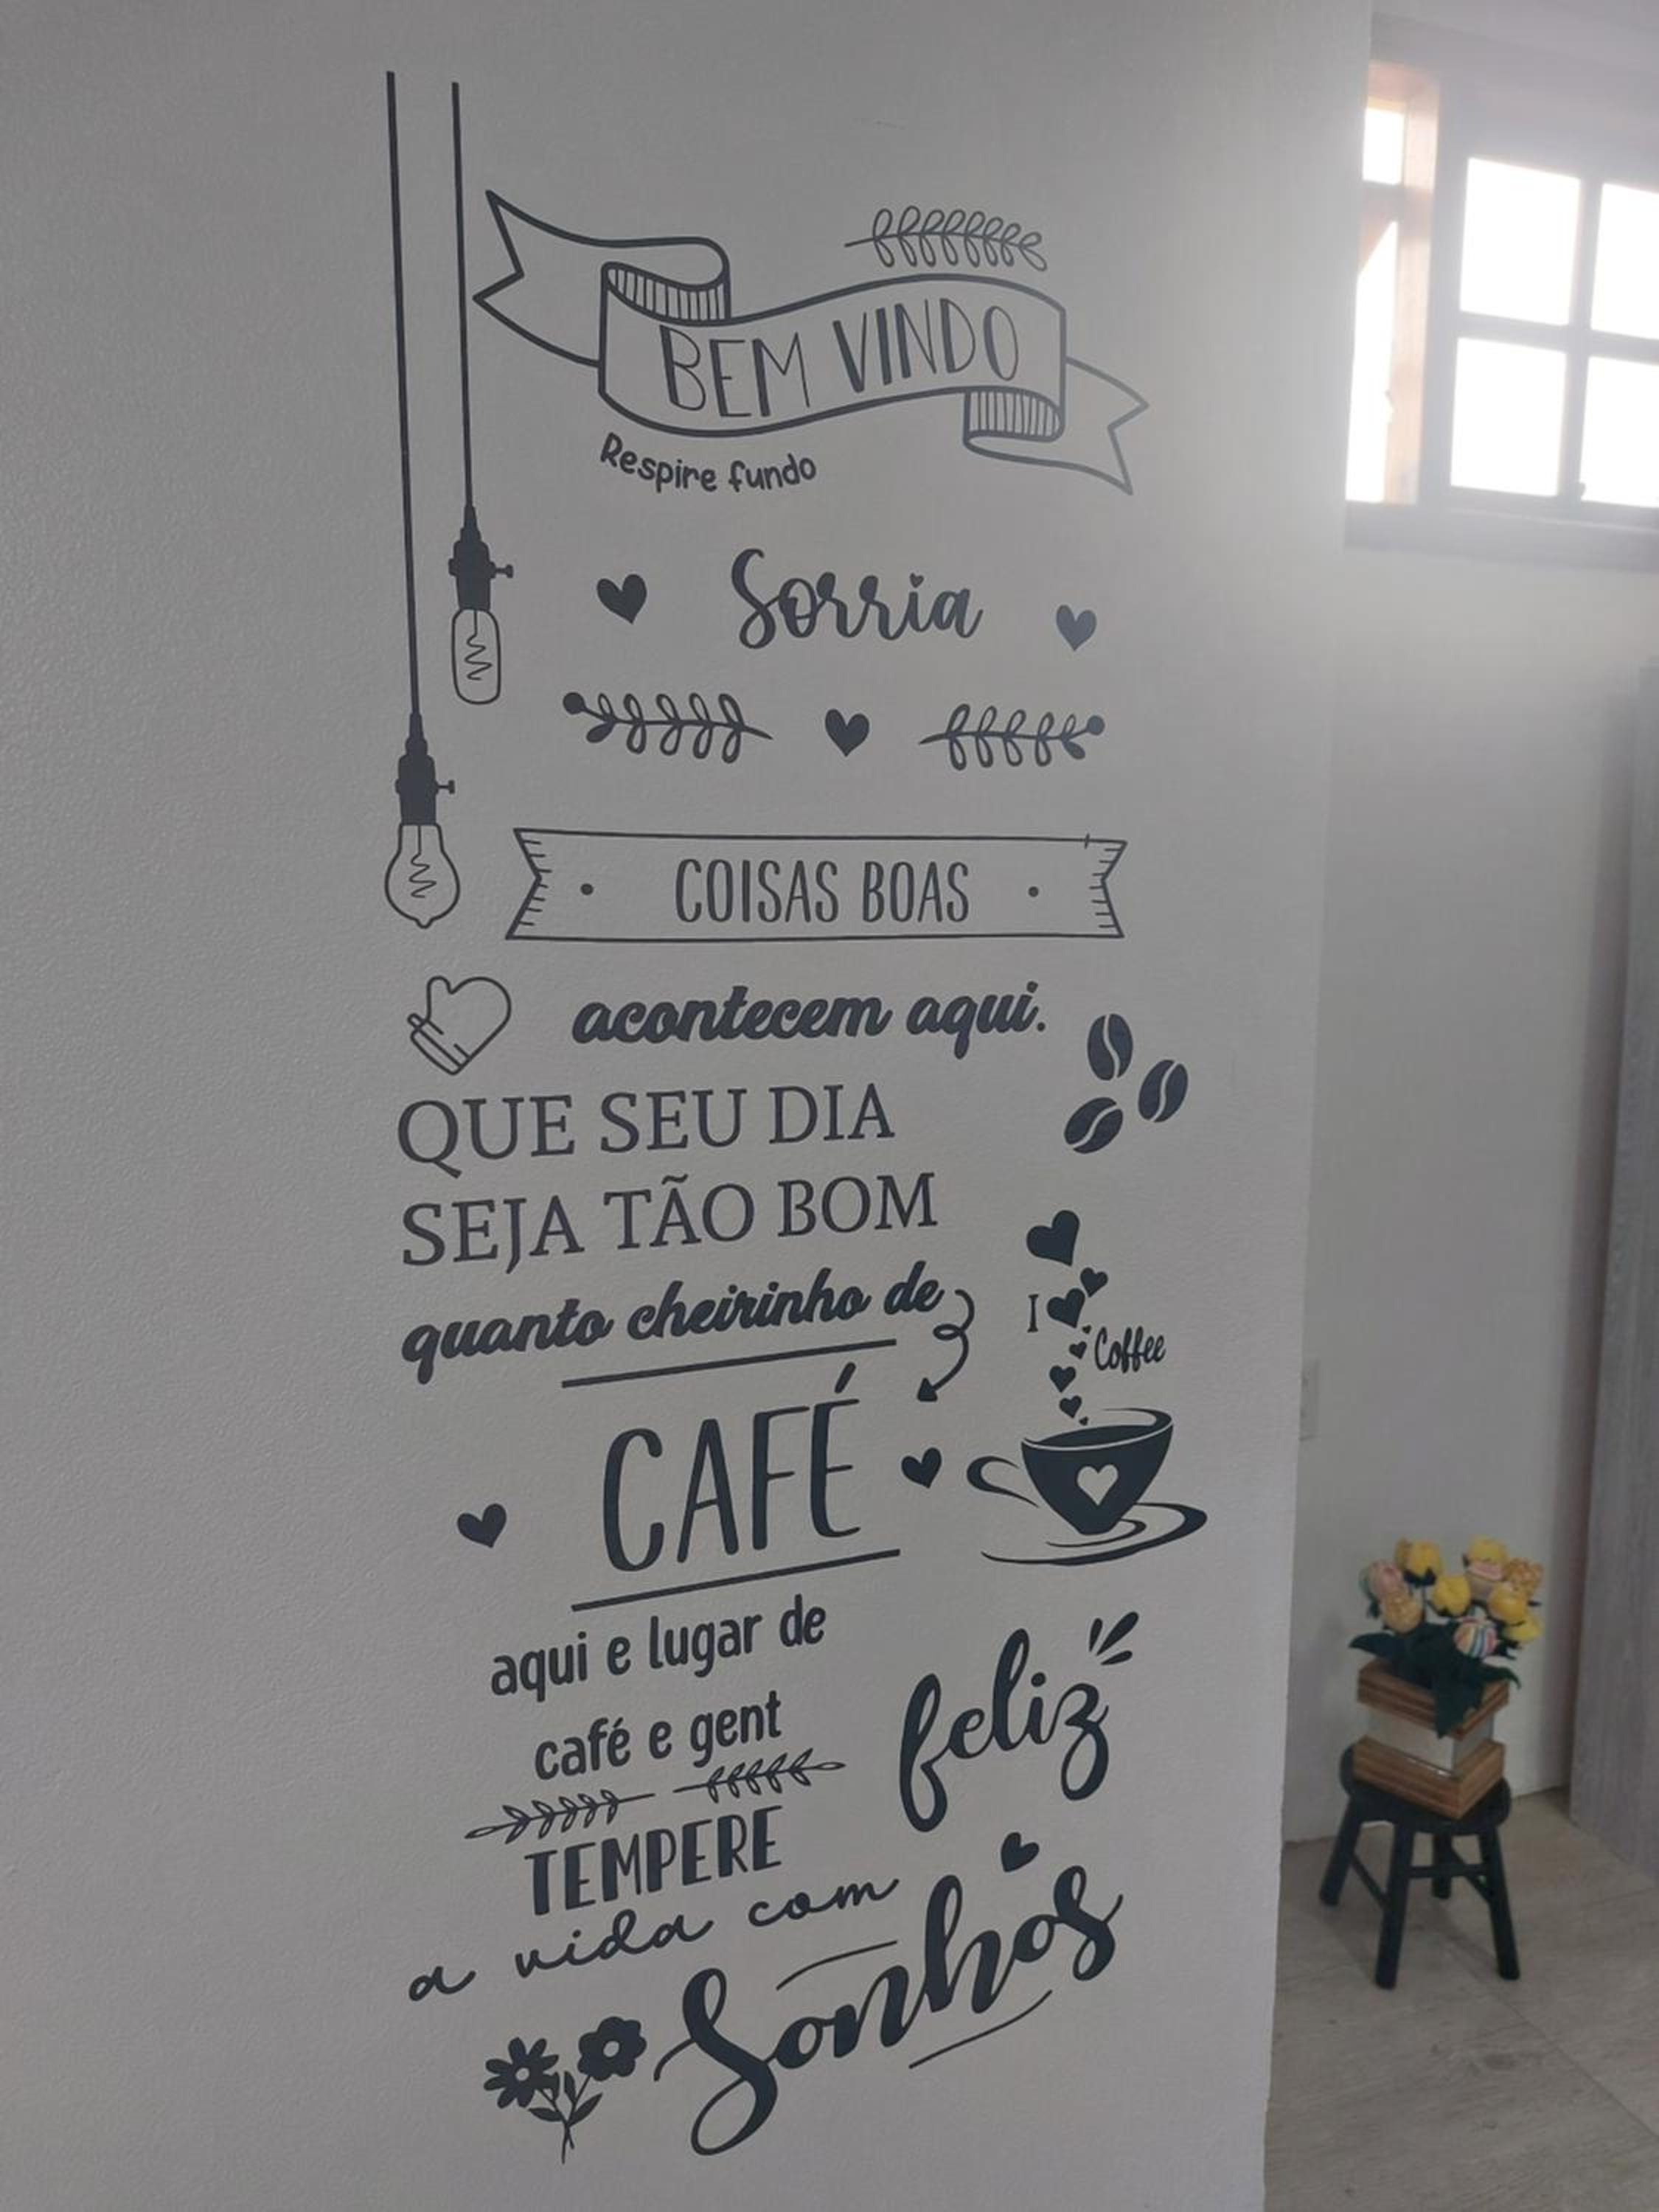 BEM VINDO
Respire fundo
Sorria
COISAS BOAS
acontecem aqui.
QUE SEU DIA
SEJA TÃO BOM
quanto cheirinho de
I
Coffee
CAFÉ
aqui e lugar de
café e gent
feliz
TEMPERE
a vida com
Sonhos